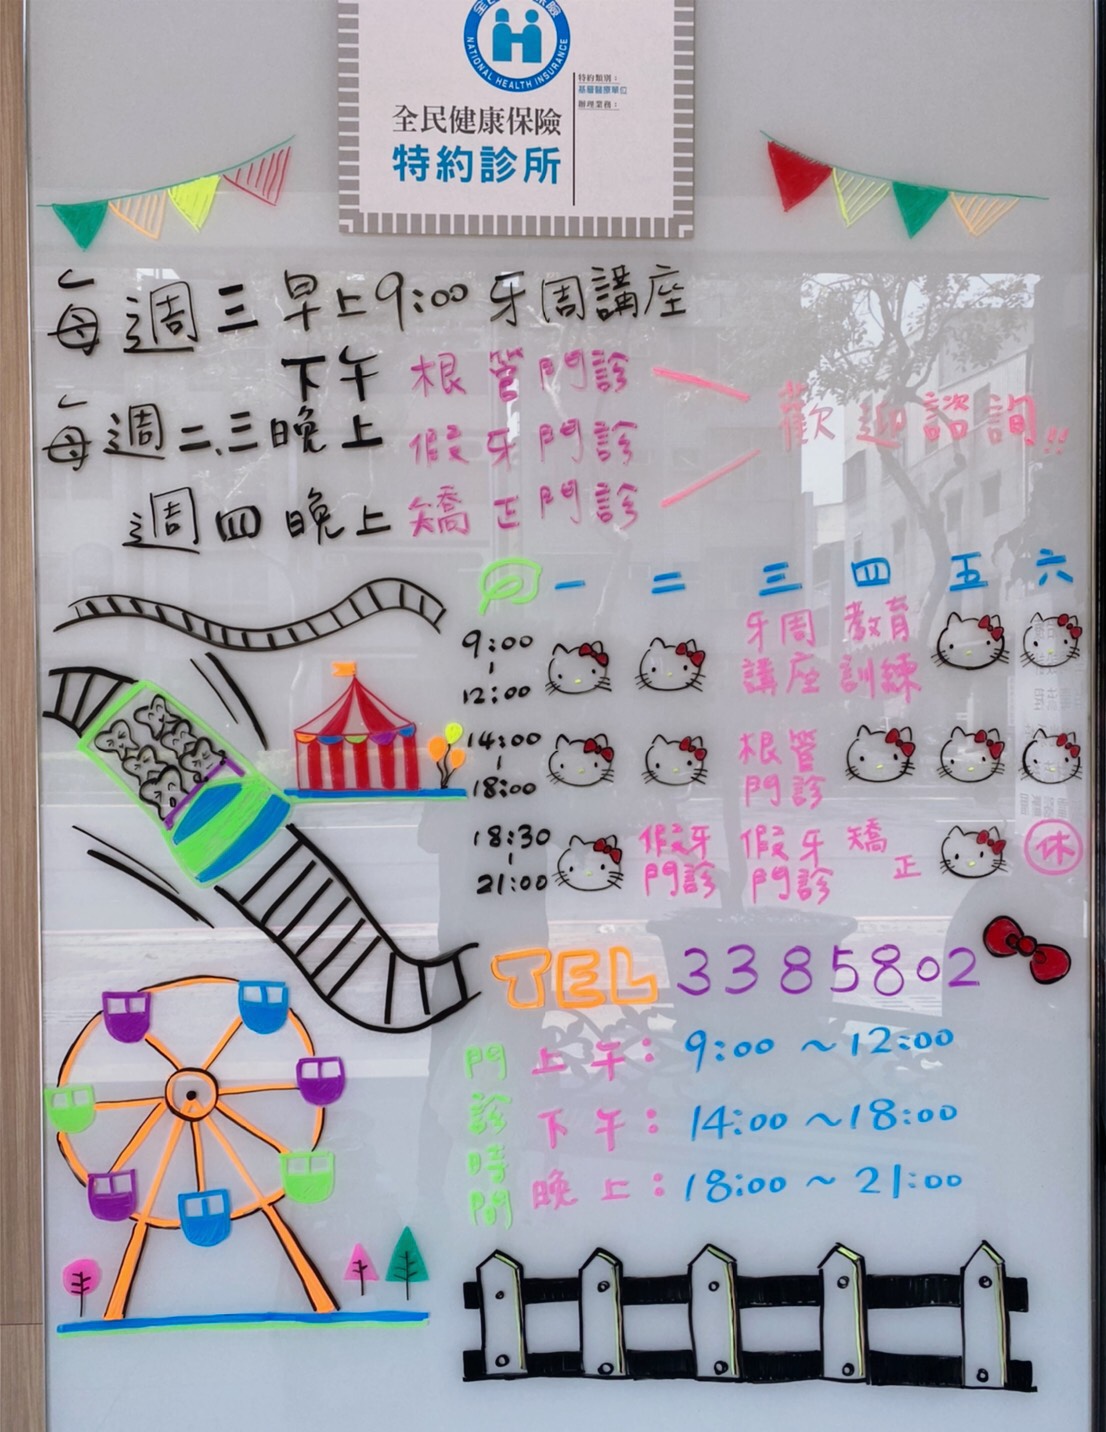 NATIONAL HEALTH INSURANCE
特約類別：
基層醫療單位
辦理業務：
全民健康保險
特約診所
每週三早上9:00 牙周講座
下午 根管門診
每週二、三晚上 假牙門診
歡迎諮詢!!
週四晚上 矯正門診
一 二 三 四 五 六
9:00 - 12:00 牙周講座 教育訓練
14:00 - 18:00 根管門診
18:30 - 21:00 假牙門診 假牙門診 矯正 休
TEL 3385802
門診時間
上午：9:00 ~12:00
下午：14:00 ~18:00
晚上：18:00 ~ 21:00